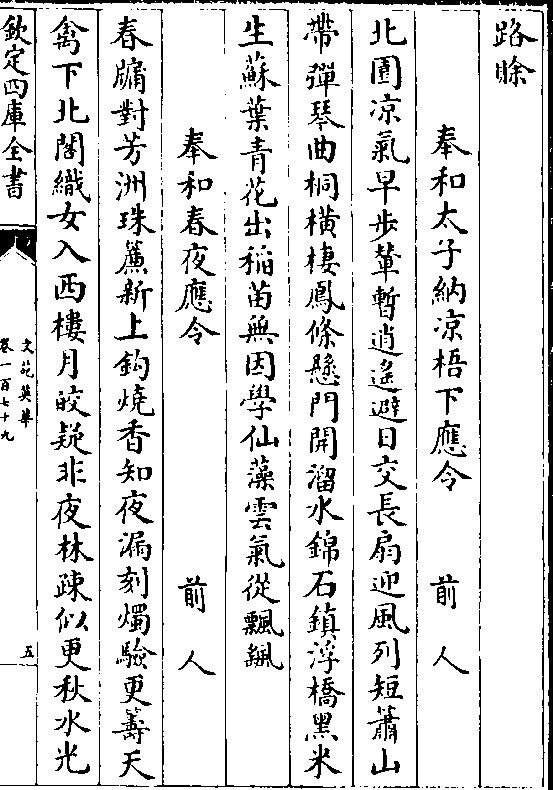 路賖
奉和太子納凉梧下應令　前人
北園凉氣早步輦暫逍遙避日交長扇迎風列短簫山
帶彈琴曲桐橫棲鳳條懸門開溜水錦石鎮浮橋黑米
生菰葉青花出稻苗無因學仙藻雲氣從飄颻
奉和春夜應令　前人
春牖對芳洲珠簾新上鈎燒香知夜漏刻燭驗更籌天
禽下北閣織女入西樓月皎疑非夜林疎似更秋水光
欽定四庫全書
文苑英華
卷一百七十九
五